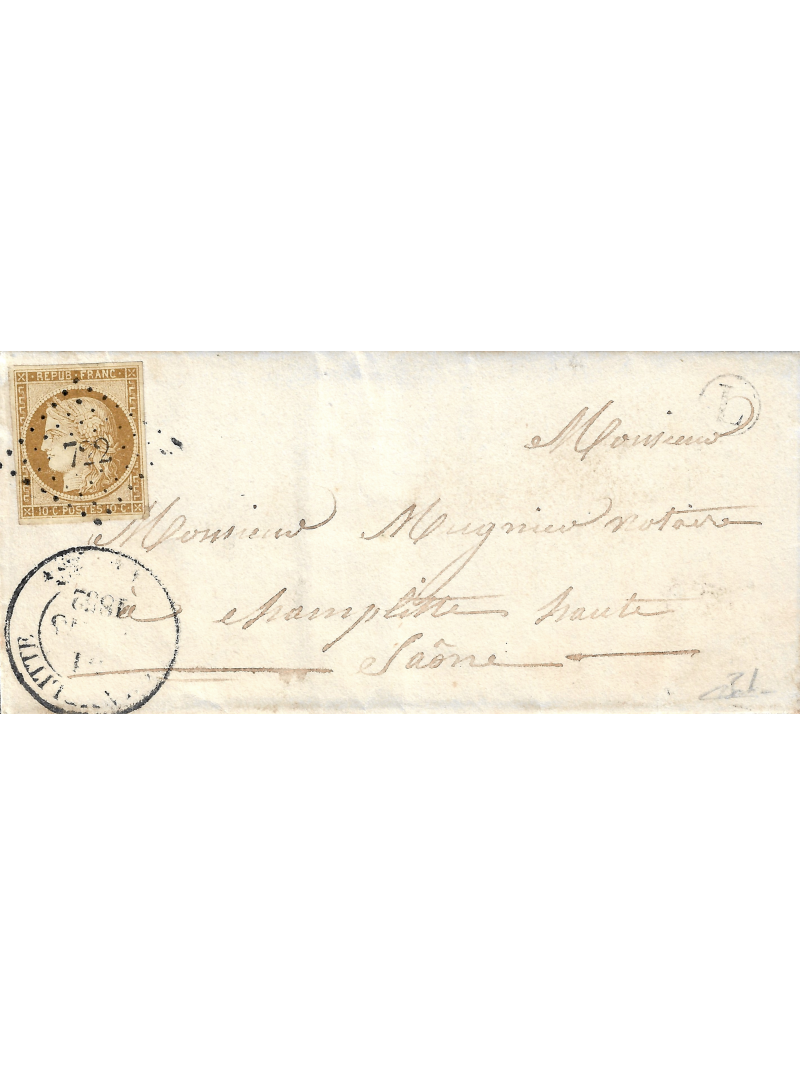 REPUB. FRANC.
722
10 C. POSTES 10 C.
L
Monsieur
Monsieur Mugnier notaire
à champlitte haute
Saône
1852
LITTE